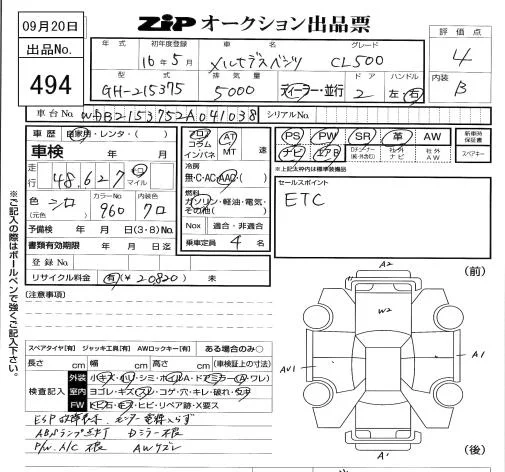 09月20日
ZIP オークション出品票
評価点
4
内装
B
出品No.
494
年式 初年度登録 車名 グレード
16年5月 メルセデスベンツ CL500
型式 排気量 ドア ハンドル
GH-215375 5000 ディーラー・並行 2 左・右
車台No. WDB2153752A041038 シリアルNo.
車歴 自家用・レンタ・( )
車検 年 月
走行 48,627 キロ マイル
色(元色) シロ カラーNo. 960 内装色 クロ
予備検 年 月 日(3・8)No.
書類有効期限 年 月 日迄
登録No.
リサイクル料金 有(¥20820) 未
フロア コラム インパネ AT MT 速
冷房
無・C・AC・AAC・( )
燃料
ガソリン・軽油・電気・その他( )
Nox 適合・非適合
乗車定員 4 名
PS PW SR 革 AW 新車時保証書
ナビ エアB 社外ナビ 社外AW スペアキー
※上記太枠内は標準装備品
セールスポイント
ETC
※ご記入の際はボールペンで強くご記入下さい。
[注意事項]
スペアタイヤ[有] ジャッキ工具[有] AWロックキー[有] ある場合のみ○
長さ cm 幅 cm 高さ cm (車検証上の寸法)
検査記入
外装 小キズ・小凹・シミ・ホイルA・ドアミラー(A・ワレ)
室内 ヨゴレ・キズ・スレ・コゲ・穴・キレ・破れ・
FW トビ石・キズ・ヒビ・リペア跡・X要ス
ABSランプ点灯 Dミラー不良
P/W. A/C 不良 AWサビ
(前)
A2
W2
AU1
A1
A1
(後)